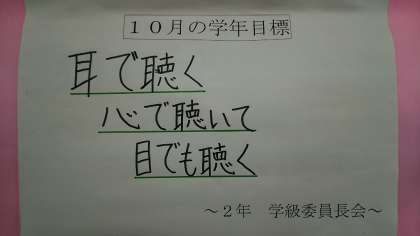 １０月の学年目標
耳で聴く
心で聴いて
目でも聴く
～２年　学級委員長会～